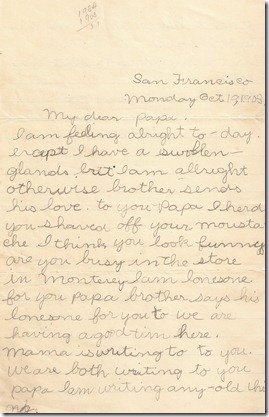 1908
San Francisco
Monday Oct. 19, 1908
My dear Papa.
I am feeling alright to-day.
except I have a swollen
glands, but I am allright
otherwise brother sends
his love. to you Papa I herd
you shaved off your mousta
che I think you look funny
are you busy in the store
in Monterey I am lonesome
for you papa brother says his
lonesome for you to we are
having a good tim here.
Mama is writing to to you.
We are both writing to you
papa I am writing any-old thi
ng.